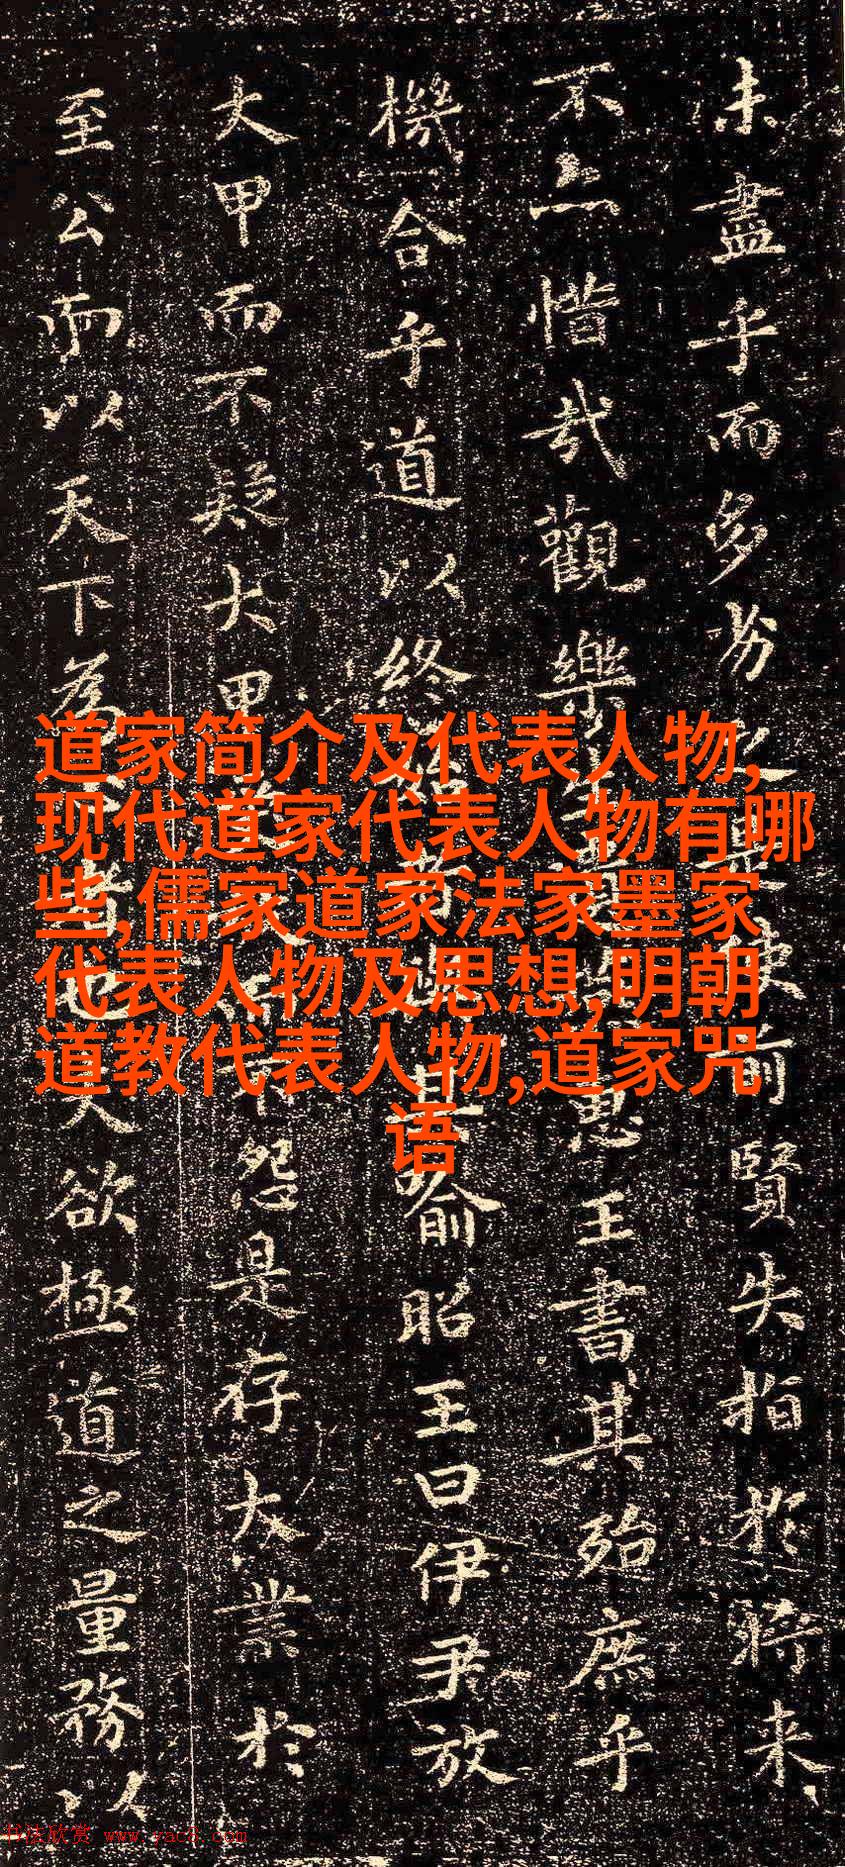 未盡乎而多劣之是使前賢失指於將来
不亦惜哉觀樂生惠王書其殆庶乎
機合乎道以終者其喻昭王曰伊尹放
大甲而不疑大甲不怨是存大業於
至公而以天下為者也夫欲極道之量務以
道家简介及代表人物,
现代道家代表人物有哪
些,儒家道家法家墨家
代表人物及思想,明朝
道教代表人物,道家咒
语
书法欣赏 www.yac8.com